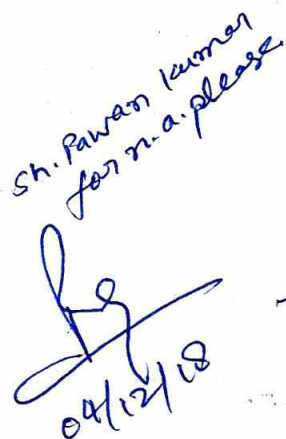 Sh. Pawan Kumar
for n.a. please
04/12/18